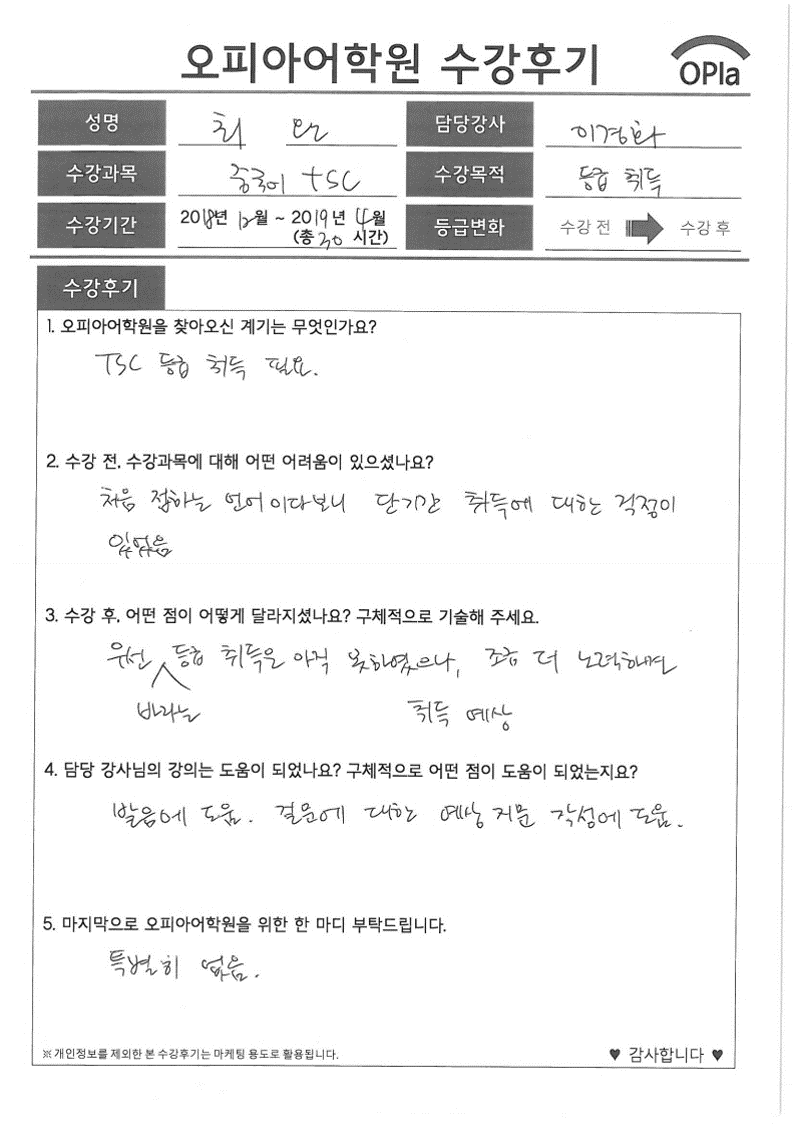 오피아어학원 수강후기
OPIa
성명 최 담당강사 이경화
수강과목 중국어 TSC 수강목적 등급 취득
수강기간 2018년 12월 ~ 2019년 4월
(총 30 시간)
등급변화 수강 전 수강 후
수강후기
1. 오피아어학원을 찾아오신 계기는 무엇인가요?
TSC 등급 취득 필요.
2. 수강 전, 수강과목에 대해 어떤 어려움이 있으셨나요?
처음 접하는 언어이다보니 단기간 취득에 대한 걱정이
있었음
3. 수강 후, 어떤 점이 어떻게 달라지셨나요? 구체적으로 기술해 주세요.
우선 등급 취득은 아직 못하였으나, 조금 더 노력하면
바라는 취득 예상
4. 담당 강사님의 강의는 도움이 되었나요? 구체적으로 어떤 점이 도움이 되었는지요?
발음에 도움. 질문에 대한 예상 지문 작성에 도움.
5. 마지막으로 오피아어학원을 위한 한 마디 부탁드립니다.
특별히 없음.
※ 개인정보를 제외한 본 수강후기는 마케팅 용도로 활용됩니다.
♥ 감사합니다 ♥